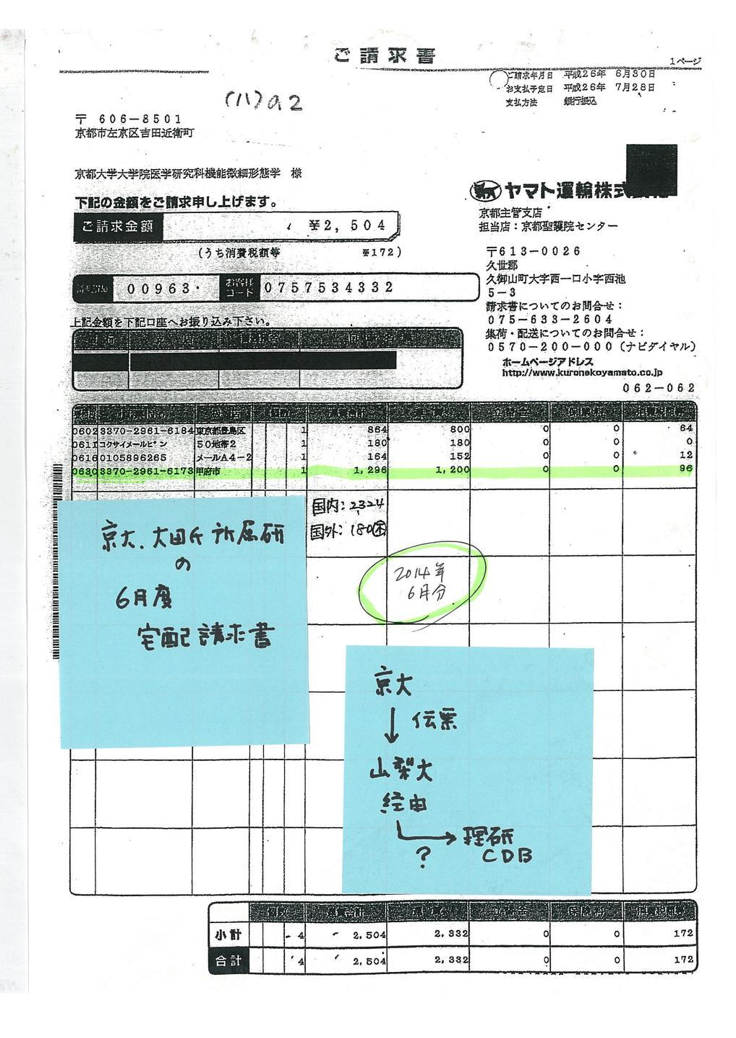 ご請求書
1ページ
ご請求年月日 平成26年 6月30日
お支払予定日 平成26年 7月28日
支払方法 銀行振込
(11)a2
〒 606-8501
京都市左京区吉田近衛町
京都大学大学院医学研究科機能微細形態学 様
下記の金額をご請求申し上げます。
ご請求金額 ¥2,504
(うち消費税額等 ¥172)
ヤマト運輸株式
京都主管支店
担当店:京都聖護院センター
〒613-0026
久世郡
久御山町大字西一口小字西池
5-3
請求書についてのお問合せ:
075-633-2604
集荷・配送についてのお問合せ:
0570-200-000(ナビダイヤル)
ホームページアドレス
http://www.kuronekoyamato.co.jp
00963
お客様コード 0757534332
上記金額を下記口座へお振り込み下さい。
062-062
0602 3370-2961-6184 東京都豊島区 1 864 800 0 0 64
0611 コクサイメールビン 50地帯2 1 180 180 0 0 0
0616 0105896265 メールA4-2 1 164 152 0 0 12
0630 3370-2961-6173 甲府市 1 1,296 1,200 0 0 96
国内:2,324
国外:180
2014年
6月分
京大、太田氏所属研
の
6月度
宅配請求書
京大
↓伝票
山梨大
経由
→理研
? CDB
小計 4 2,504 2,332 0 0 172
合計 4 2,504 2,332 0 0 172